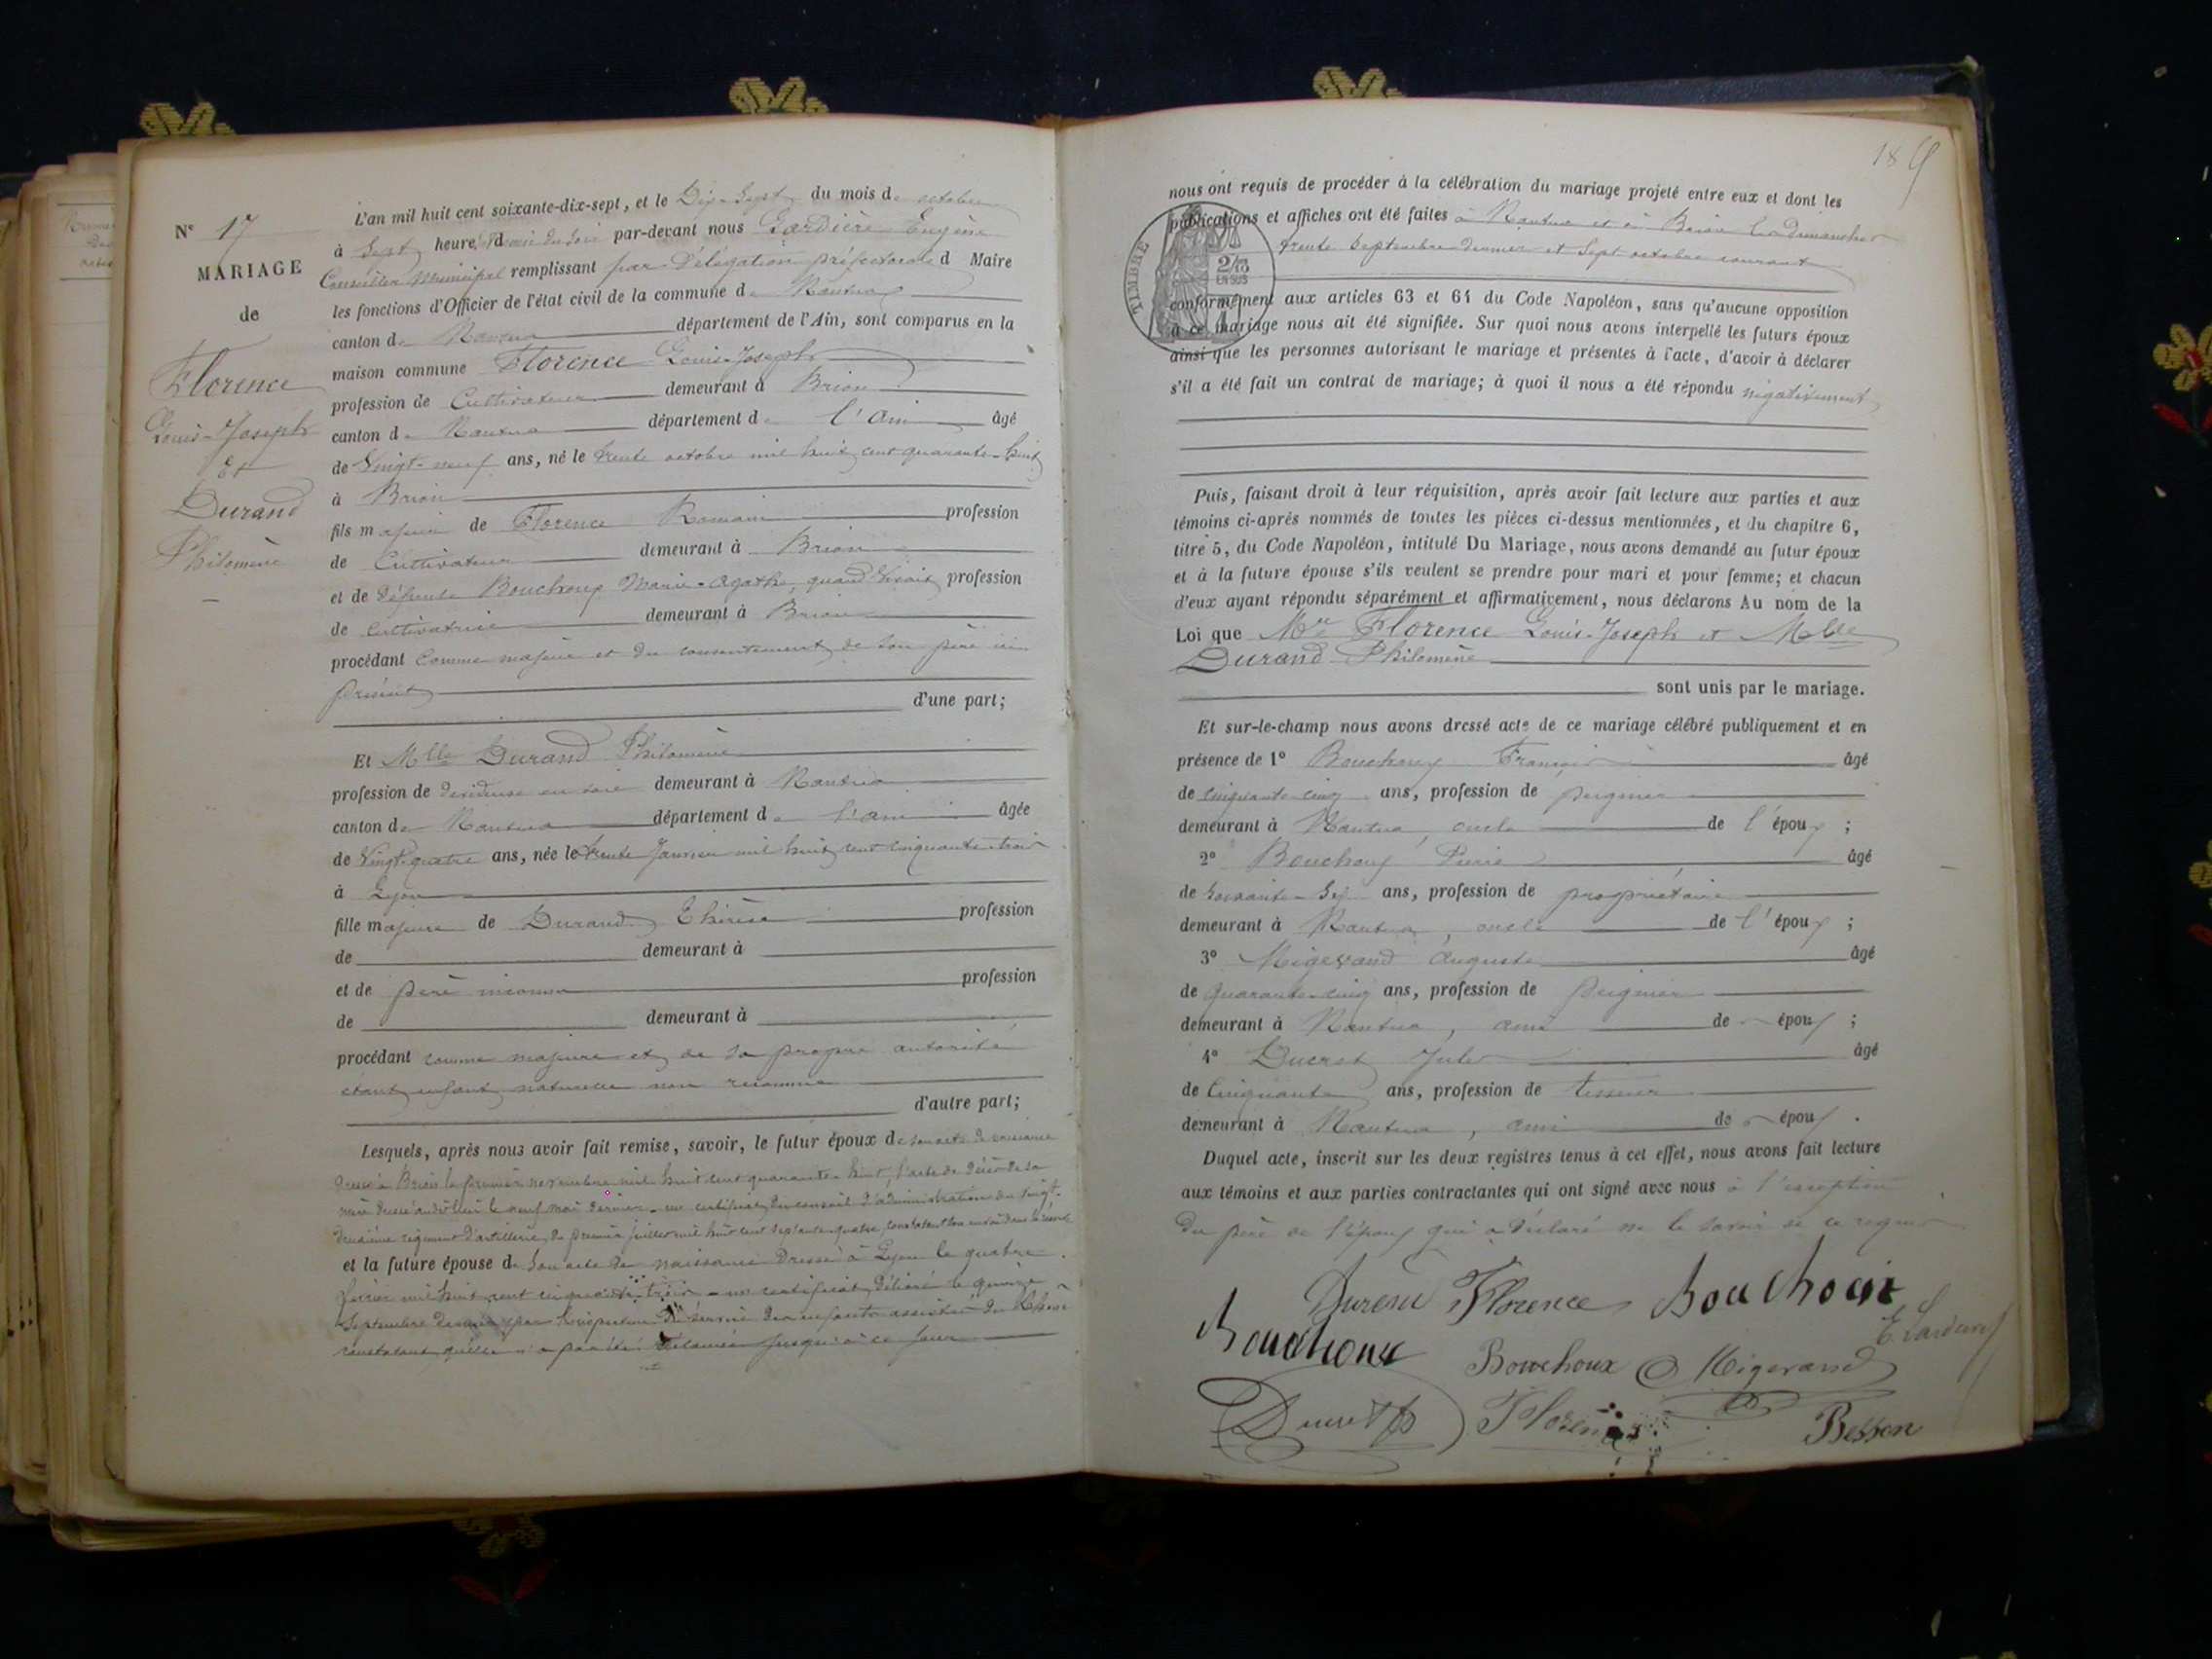 N° 17
MARIAGE
de
Florence
Louis-Joseph
Et
Durand
Philomène
L'an mil huit cent soixante-dix-sept, et le Dix-Sept du mois d octobre
à Sept heure du Soir par-devant nous Eugène
Conseiller Municipal remplissant par Délégation préfectorale d Maire
les fonctions d'Officier de l'état civil de la commune de Nantua
canton de Nantua département de l'Ain, sont comparus en la
maison commune Florence Louis-Joseph
profession de Cultivateur demeurant à Brion
canton de Nantua département de l'Ain âgé
de Vingt-neuf ans, né le trente octobre mil huit cent quarante-huit
à Brion
fils majeur de Florence Romain profession
de Cultivateur demeurant à Brion
et de défunte Bouchoux Marie-Agathe, quand vivait profession
de cultivatrice demeurant à Brion
procédant Comme majeur et du consentement de son père ici
présent
d'une part;
Et Mlle Durand Philomène
profession de dévideuse en soie demeurant à Nantua
canton de Nantua département de l'Ain âgée
de Vingt-quatre ans, née le trente Janvier mil huit cent cinquante-trois
à Lyon
fille majeure de Durand Thérèse profession
de demeurant à
et de père inconnu profession
de demeurant à
procédant comme majeure et de sa propre autorité
étant enfant naturelle non reconnue
d'autre part;
Lesquels, après nous avoir fait remise, savoir, le futur époux de son acte de naissance
dressé à Brion le premier novembre mil huit cent quarante-huit, l'acte de décès de sa
mère dressé audit lieu le neuf mai dernier - un certificat du conseil d'administration du vingt-
deuxième régiment d'artillerie, du premier juillet mil huit cent septante-quatre, constatant
et la future épouse de son acte de naissance Dressé à Lyon le quatre
février mil huit cent cinquante-trois - un certificat délivré le quinze
Septembre dernier par l'inspecteur du service des enfants assistés du Rhône
constatant qu'elle n'a pas été réclamée jusqu'à ce jour
185
nous ont requis de procéder à la célébration du mariage projeté entre eux et dont les
publications et affiches ont été faites à Nantua et à Brion les dimanches
trente Septembre dernier et Sept octobre courant
TIMBRE
2/10
EN SUS
conformément aux articles 63 et 64 du Code Napoléon, sans qu'aucune opposition
à ce mariage nous ait été signifiée. Sur quoi nous avons interpellé les futurs époux
ainsi que les personnes autorisant le mariage et présentes à l'acte, d'avoir à déclarer
s'il a été fait un contrat de mariage; à quoi il nous a été répondu négativement
Puis, faisant droit à leur réquisition, après avoir fait lecture aux parties et aux
témoins ci-après nommés de toutes les pièces ci-dessus mentionnées, et du chapitre 6,
titre 5, du Code Napoléon, intitulé Du Mariage, nous avons demandé au futur époux
et à la future épouse s'ils veulent se prendre pour mari et pour femme; et chacun
d'eux ayant répondu séparément et affirmativement, nous déclarons Au nom de la
Loi que Mr Florence Louis-Joseph et Mlle
Durand Philomène
sont unis par le mariage.
Et sur-le-champ nous avons dressé acte de ce mariage célébré publiquement et en
présence de 1° Bouchoux François âgé
de cinquante-cinq ans, profession de peignier
demeurant à Nantua, oncle de l'époux;
2° Bouchoux Pierre âgé
de soixante-Six ans, profession de propriétaire
demeurant à Nantua, oncle de l'époux;
3° Migerand Auguste âgé
de quarante-cinq ans, profession de peignier
demeurant à Nantua, ami de épou;
4° Ducret Jules âgé
de Cinquante ans, profession de tisseur
demeurant à Nantua, ami de épou.
Duquel acte, inscrit sur les deux registres tenus à cet effet, nous avons fait lecture
aux témoins et aux parties contractantes qui ont signé avec nous à l'exception
du père de l'époux qui a déclaré ne le savoir de ce requis
Florence Bouchoux
Bouchoux Bouchoux Migerand
Ducret Florence Besson